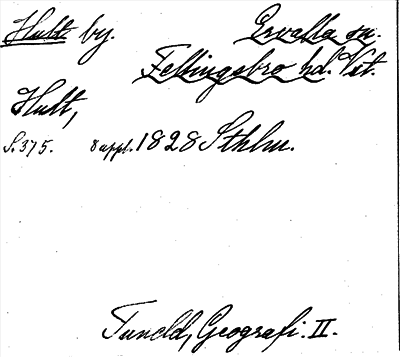 Hult by. Ervalla sn.
Fellingsbro hd. Vst.
Hult,
S. 375. 8 uppl. 1828 Sthlm.
Tuneld, Geografi. II.